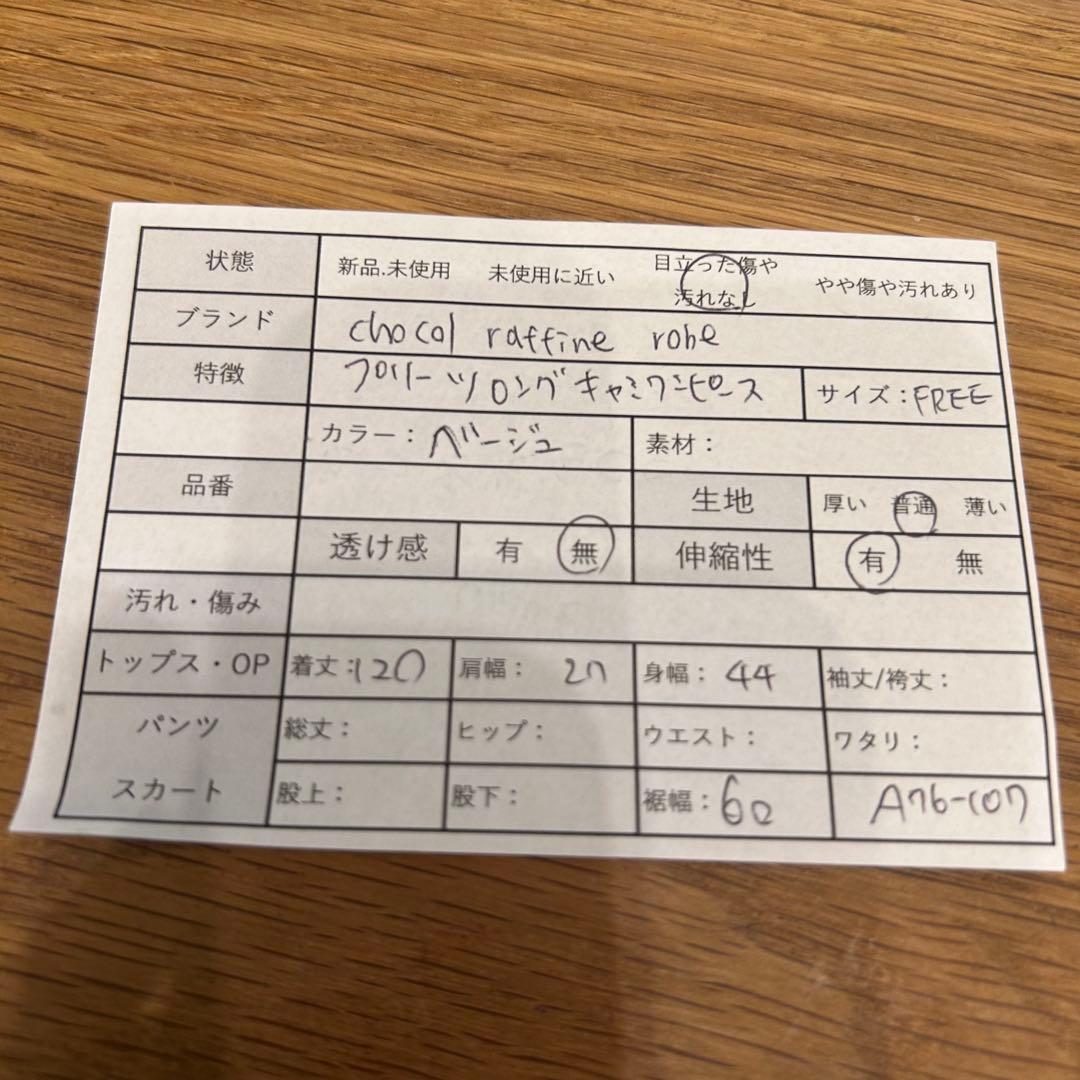 状態 新品.未使用 未使用に近い 目立った傷や汚れなし やや傷や汚れあり
ブランド chocol raffine robe
特徴 プリーツロングキャミワンピース サイズ：FREE
カラー：ベージュ 素材：
品番 生地 厚い 普通 薄い
透け感 有 無 伸縮性 有 無
汚れ・傷み
トップス・OP 着丈：120 肩幅：27 身幅：44 袖丈/裄丈：
パンツ 総丈： ヒップ： ウエスト： ワタリ：
スカート 股上： 股下： 裾幅：60 A76-107